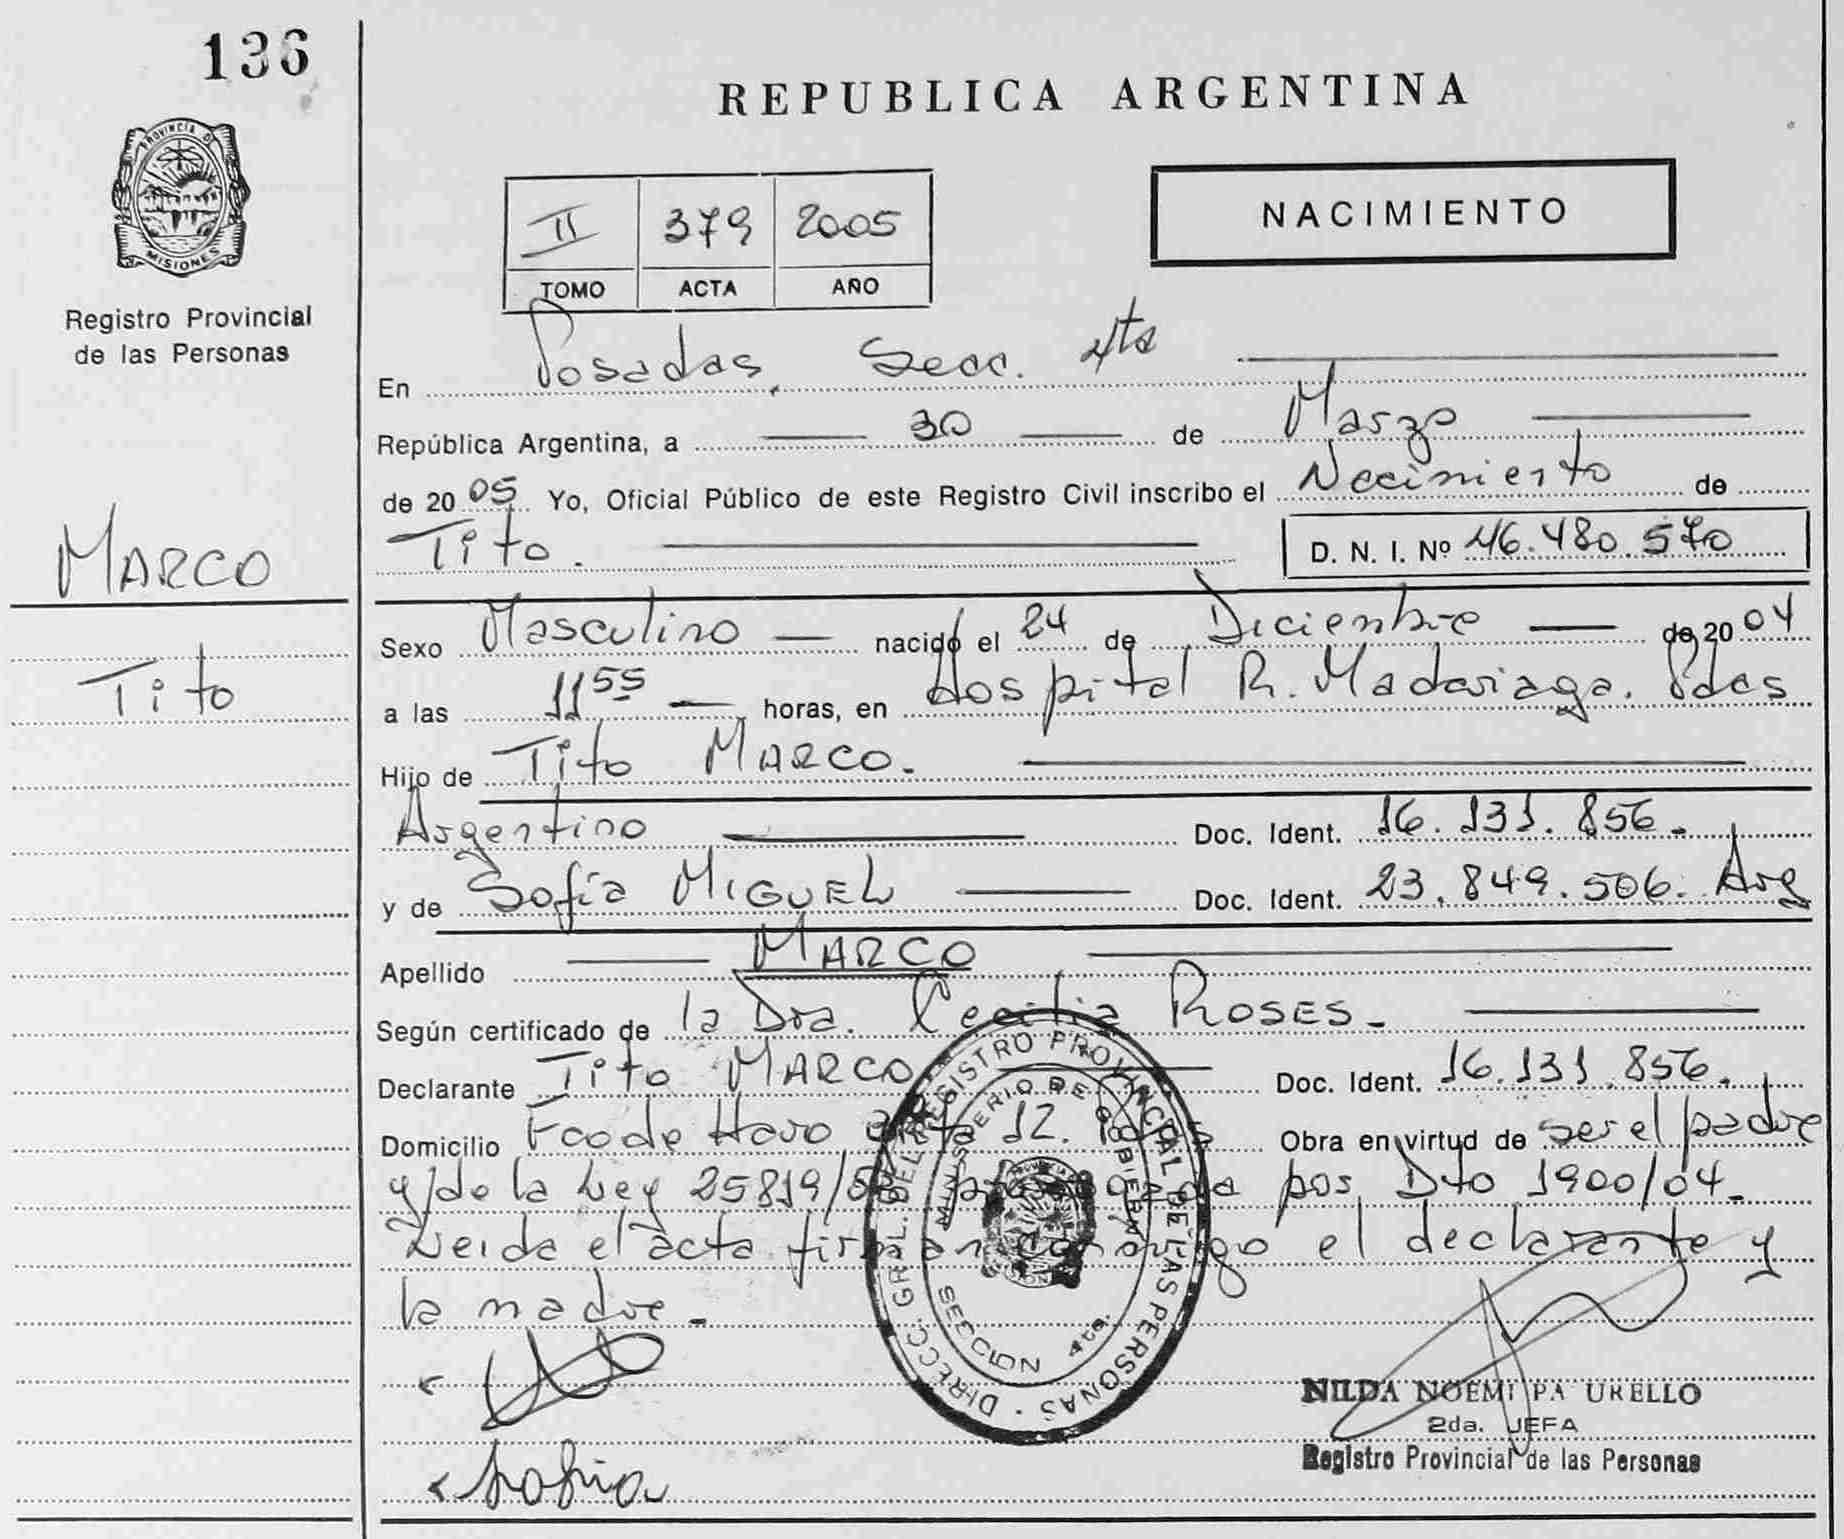 136
REPUBLICA ARGENTINA
PROVINCIA DE
MISIONES
Registro Provincial
de las Personas
NACIMIENTO
II 379 2005
TOMO ACTA AÑO
En Posadas, Secc. 4ta
República Argentina, a 30 de Marzo
de 20 05 Yo, Oficial Público de este Registro Civil inscribo el Nacimiento de
Tito. D. N. I. Nº 46.480.570
MARCO
Tito
Sexo Masculino nacido el 24 de Diciembre de 20 04
a las 11 55 horas, en Hospital R. Madariaga. Pdas
Hijo de Tito MARCO.
Argentino Doc. Ident. 16.131.856.
y de Sofía MIGUEL Doc. Ident. 23.849.506. Arg
Apellido MARCO
Según certificado de la Dra. Cecilia ROSES.
Declarante Tito MARCO Doc. Ident. 16.131.856.
Domicilio Fco de Haro 12. Obra en virtud de ser el padre
y/de la Ley 25819/ por Dto 1900/04.
Leida el acta firman conmigo el declarante y
la madre.
DIRECC. GRAL. DEL REGISTRO PROVINCIAL DE LAS PERSONAS
MINISTERIO DE GOBIERNO
SECCION 4ta.
Sofia
NILDA NOEMI PA URELLO
2da. JEFA
Registro Provincial de las Personas